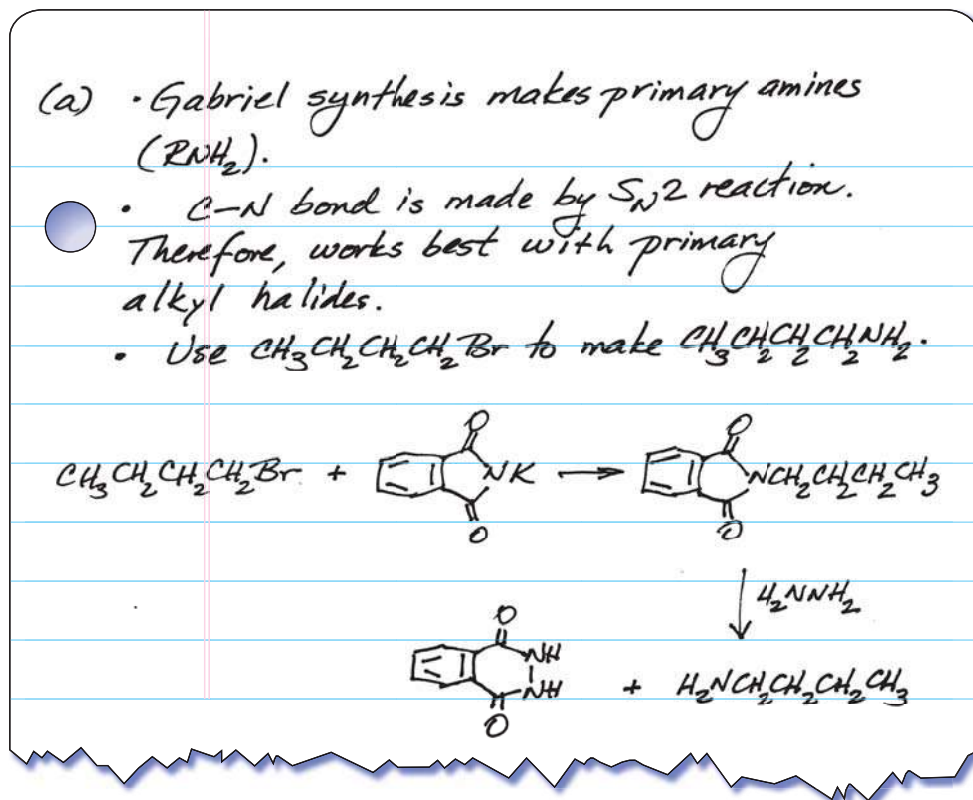 (a) • Gabriel synthesis makes primary amines
(RNH₂).
• C–N bond is made by Sɴ2 reaction.
Therefore, works best with primary
alkyl halides.
• Use CH₃CH₂CH₂CH₂Br to make CH₃CH₂CH₂CH₂NH₂.
O O
CH₃CH₂CH₂CH₂Br + NK → NCH₂CH₂CH₂CH₃
O O
↓ H₂NNH₂
O
NH
NH + H₂NCH₂CH₂CH₂CH₃
O